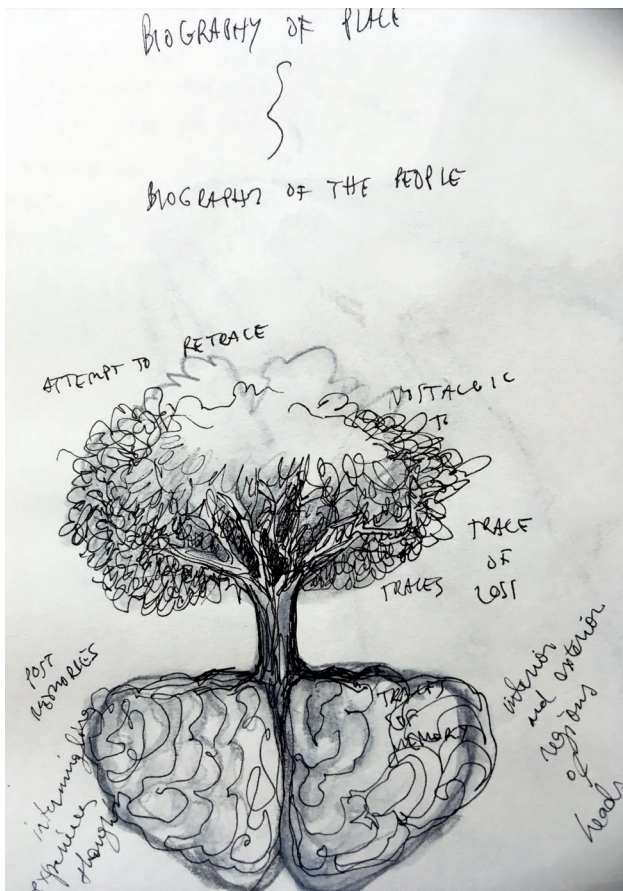 BIOGRAPHY OF PLACE
BIOGRAPHY OF THE PEOPLE
ATTEMPT TO RETRACE
NOSTALGIC
TO
TRACE
OF
TRACES LOSS
POST
MEMORIES
TRACES
OF
MEMORY
interior
and exterior
regions
of
heads
intermingling
experiences
thoughts